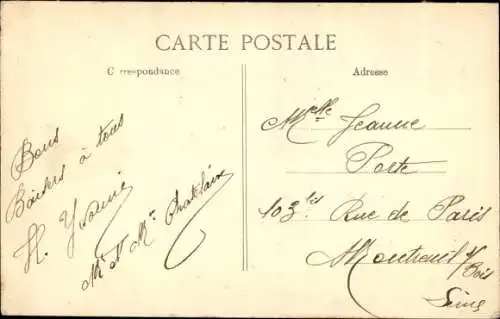 CARTE POSTALE
Correspondance
Adresse
Bons
Baisers à tous
H. Yvonne
Mr et Mme Chatelain
Melle Jeanne
Porte
103 bis Rue de Paris
Montreuil s/ Bois
Seine